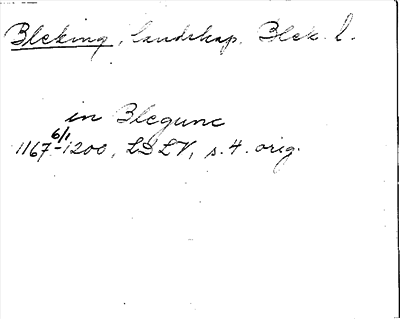 Bleking, landskap. Blek. l.
in Blegunc
6/1
1167-1200, LDLV, s. 4. orig.